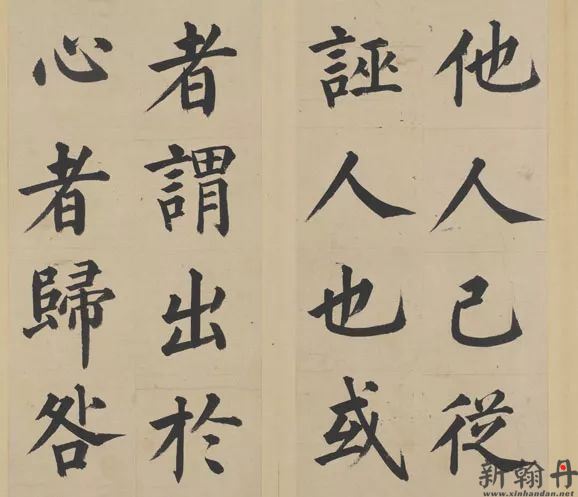 他人己從
誣人也或
者謂出於
心者歸咎
新翰丹
www.xinhandan.net